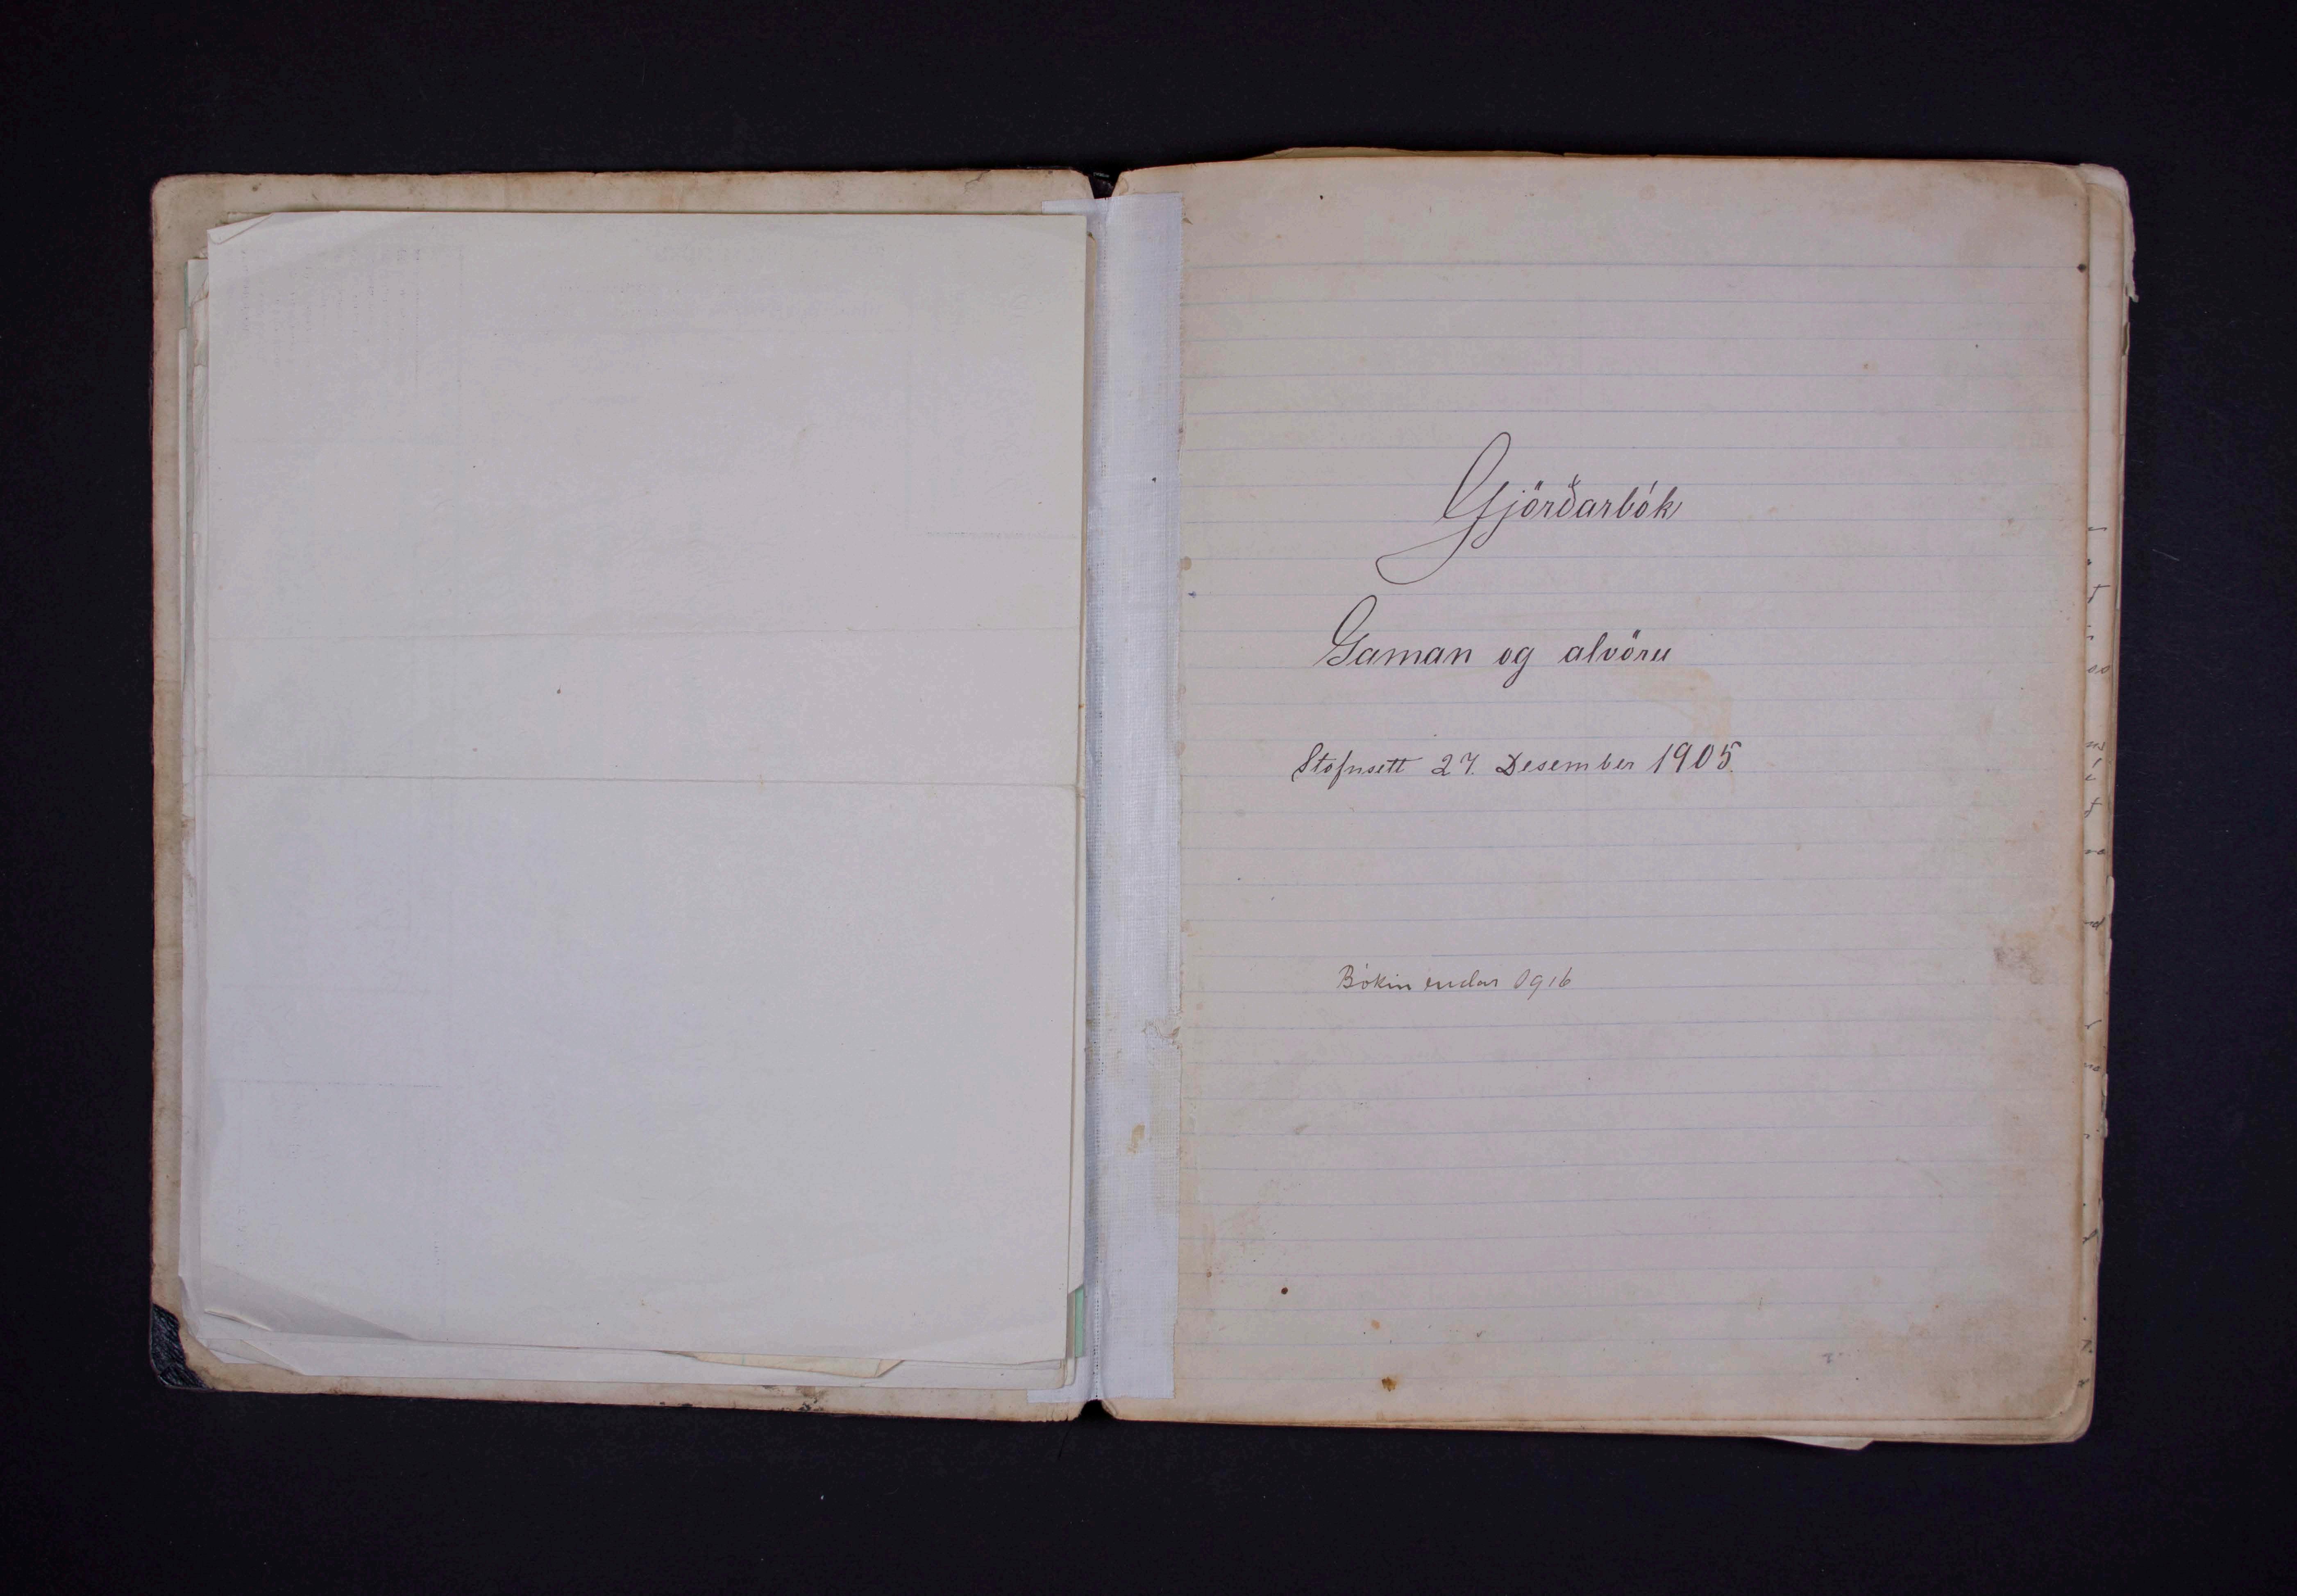 Gjörðarbók
Gaman og alvöru
Stofnsett 27. Desember 1905.
Bókin endar 1916